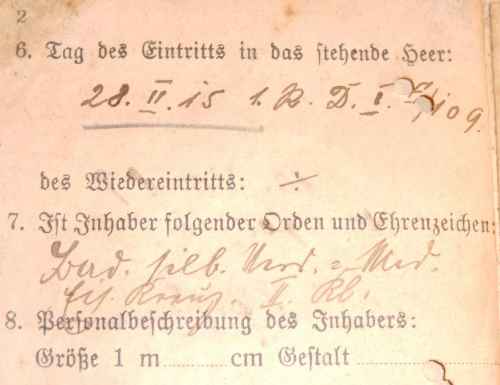 2
6. Tag des Eintritts in das stehende Heer:
28. II. 15 1. R. D. I. /109.
des Wiedereintritts: ÷
7. Ist Inhaber folgender Orden und Ehrenzeichen:
Bad. silb. Verd. = Med.
Eis. Kreuz. II. Kl.
8. Personalbeschreibung des Inhabers:
Größe 1 m cm Gestalt